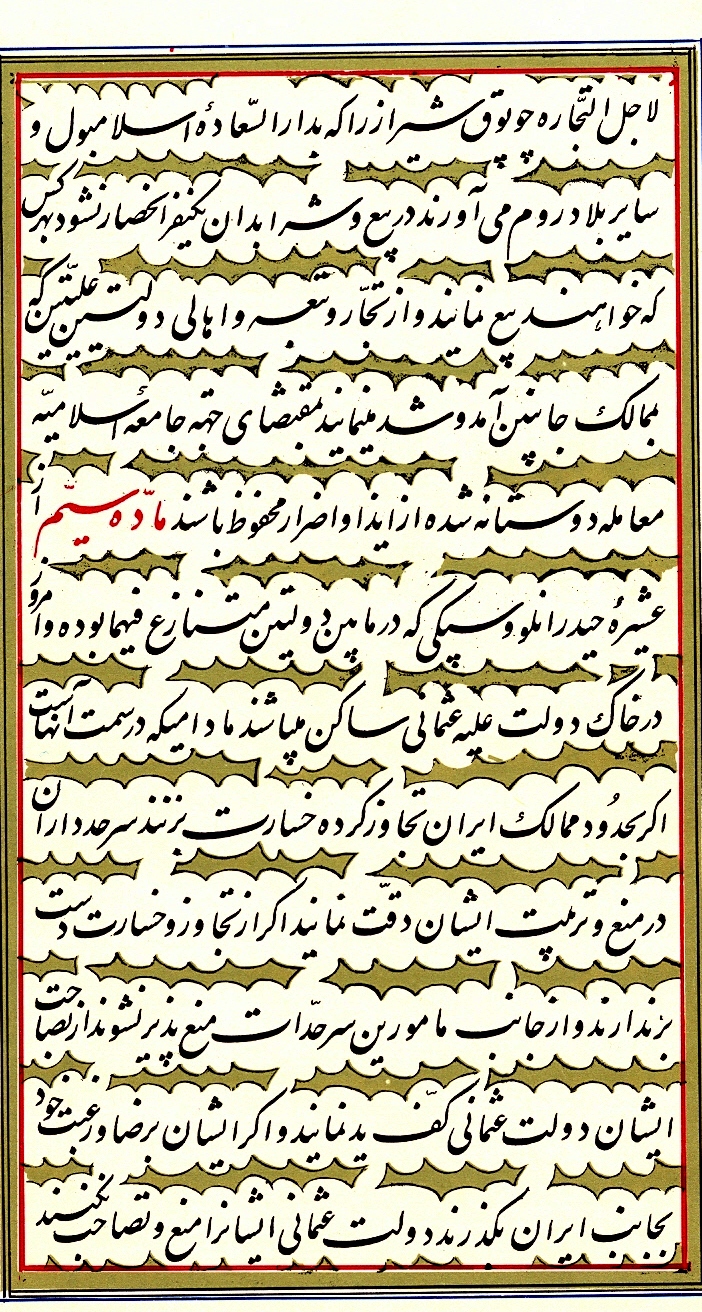 لاجل التجّاره چوبوق شیراز را که بدار السّعادهٔ اسلامبول و
سایر بلاد روم می آورند در بیع و شرا بدان یکنفر انحصار نشود بهر کس
که خواهند بیع نمایند و از تجّار و تبعه و اهالی دولتین علیّتین که
بممالک جانبین آمد و شد مینمایند بمقتضای جهة جامعهٔ اسلامیّه
معامله دوستانه شده از ایذا و اضرار محفوظ باشند مادّه سیّم از
عشیرهٔ حیدرانلو و سبیکی که در ما بین دولتین متنازع فیها بوده و امروز
در خاک دولت علیه عثمانی ساکن میباشند مادامیکه در سمت آنهاست
اکر بحدُود ممالک ایران تجاوز کرده خسارت بزنند سرحدداران
در منع و تربیت ایشان دقّت نمایند اکر از تجاوز و خسارت دست
برندارند و از جانب مامورین سرحدّات منع پذیر نشوند از تصاحب
ایشان دولت عثمانی کفّ ید نمایند و اکر ایشان برضا و رغبت خود
بجانب ایران بکذرند دولت عثمانی ایشانرا منع و تصاحب نکنند